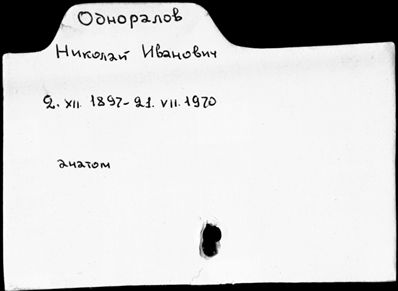 Одноралов
Николай Иванович
2. XII. 1897-21. VII. 1970
анатом